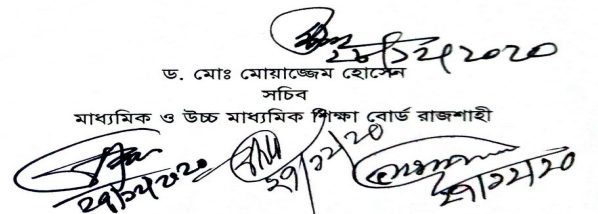 ২৮/১২/২০২০
ড. মোঃ মোয়াজ্জেম হোসেন
সচিব
মাধ্যমিক ও উচ্চ মাধ্যমিক শিক্ষা বোর্ড রাজশাহী
২৭/১২/২০২০ ২৭/১২/২০ ২৭/১২/২০